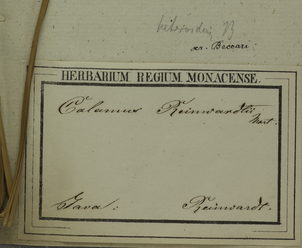 ex. Beccari.
HERBARIUM REGIUM MONACENSE.
Calamus Reinwardtii
Mart.
Java: Reinwardt.